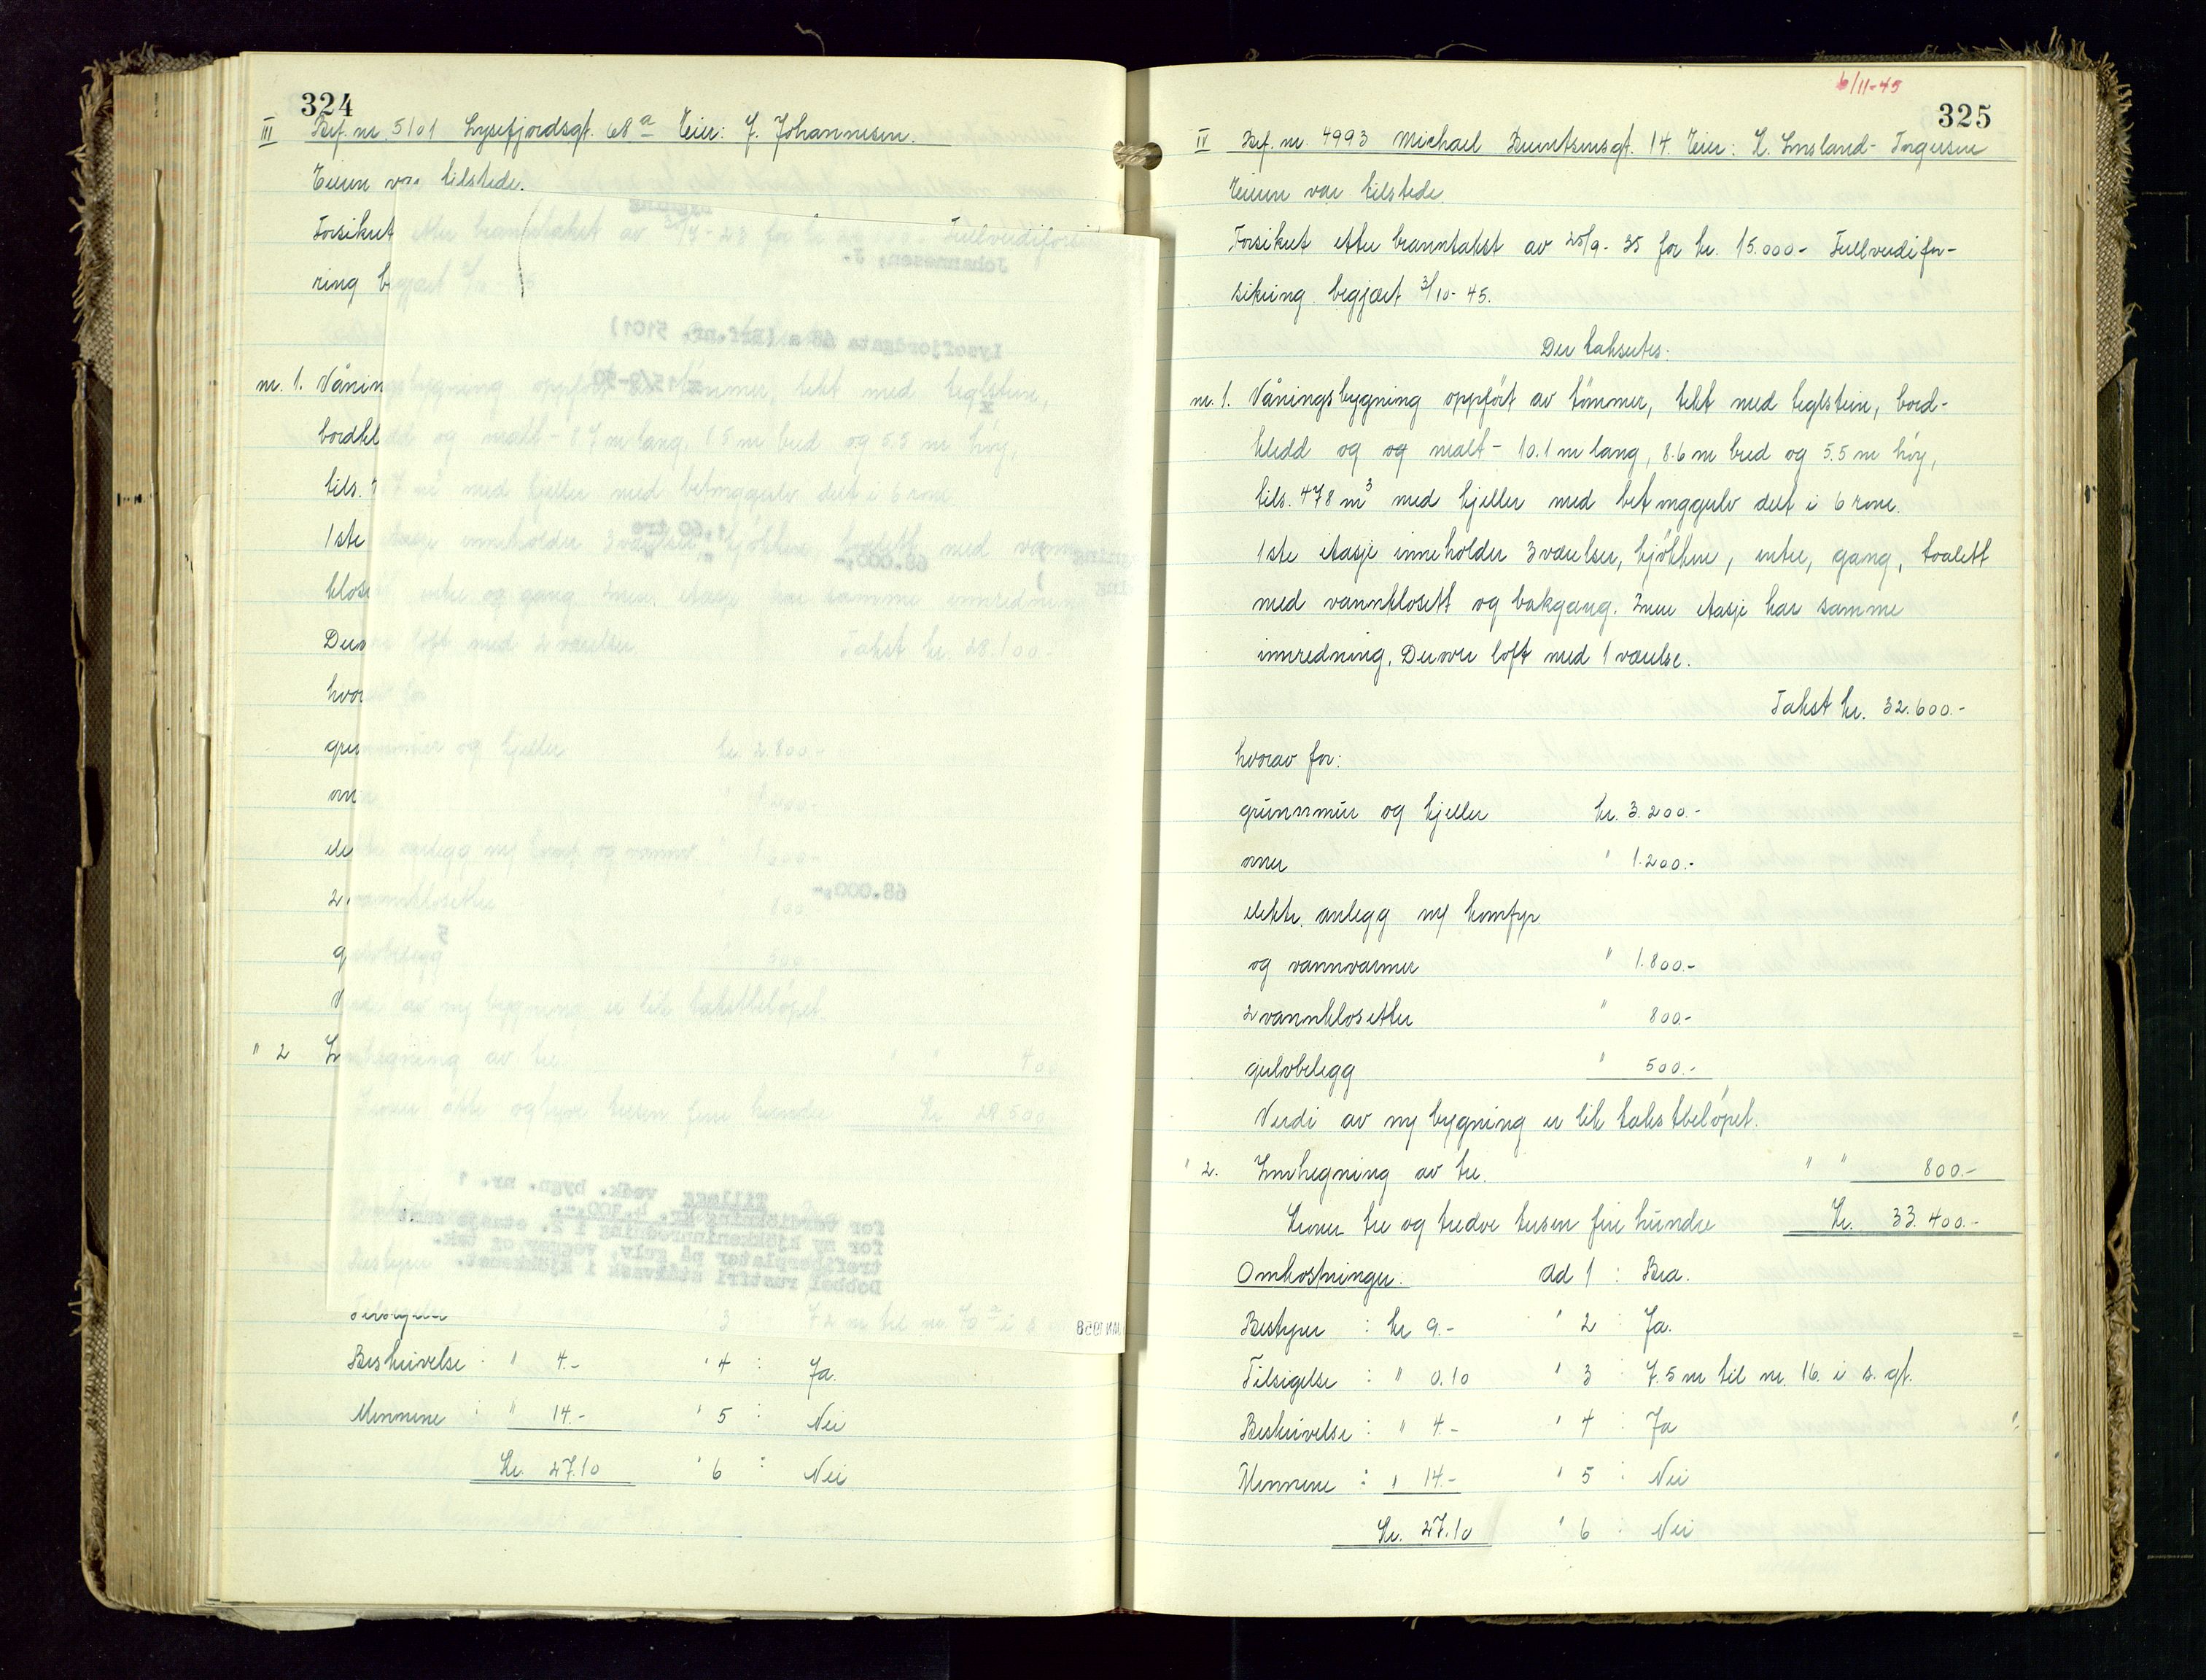 324
III Brf. nr. 5101 Lysefjordsgt. 68a Eier: J. Johannesen.
Eieren var tilstede.
Forsikret etter branntakst av for kr. Fullverdiforsik
ring begjært
nr. 1. Våningsbygning oppført av tømmer, tekt med teglstein,
bordkledd og malt - 8.7 m lang, 8.5 m bred og 5.5 m høy,
tils. med kjeller med betonggulv delt i 6 rom.
1ste etasje inneholder 3 værelser, kjøkken, toalett med vann-
klosett, entre og gang. 2nen etasje har samme innredning
Derover loft med 2 værelser. Takst kr. 28.100.-
hvorav for
grunnmur og kjeller kr. 2.800.-
ovner
elektr. anlegg m/ komf. og vannv.
2 vannklosetter " 800
gulvbelegg " 500
Verdi av ny bygning er lik takstbeløpet.
" 2 Innhegning av tre. " " 400
Kroner åtte og tyve tusen fem hundre Kr. 28.500.-
Bestyrer
Tilsigelse " 3 : 7.2 m til nr. 70a i s
Beskrivelse : " 4.- " 4 : Ja.
Mennene : " 14.- " 5 : Nei
Kr. 27.10 " 6 : Nei
bygning
Johannesen, J.
Lysefjordgata 68 a (Brf.nr. 5101)
15/9-50
I
1,60 tre
68.000,-
68.000,-
5
Tillegg vedk. bygn. nr. 1
for verdiökning kr. 4.300,-.
for ny kjökkeninnredning i 2. etasje samt
trefiberplater på gulv, vegger og tak.
Dobbel rustfri stålvask i kjökkenet.
6/11-45
325
IV Brf. nr. 4993 Michael Berntsensgt. 14. Eier: K. Imsland-Ingersen
Eieren var tilstede.
Forsikret etter branntakst av 25/9-35 for kr. 15.000.- Fullverdifor-
sikring begjært 3/10-45.
Der takseres.
nr. 1. Våningsbygning oppført av tømmer, tekt med teglstein, bord-
kledd og og malt - 10.1 m lang, 8.6 m bred og 5.5 m høy,
tils. 478 m³ med kjeller med betonggulv delt i 6 rom.
1ste etasje inneholder 3 værelser, kjøkken, entre, gang, toalett
med vannklosett og bakgang. 2nen etasje har samme
innredning. Derover loft med 1 værelse.
Takst kr. 32.600.-
hvorav for:
grunnmur og kjeller kr. 3.200.-
ovner " 1.200.-
elektr. anlegg m/ komfyr
og vannvarmer " 1.800.-
2 vannklosetter " 800.-
gulvbelegg " 500.-
Verdi av ny bygning er lik takstbeløpet.
" 2. Innhegning av tre. " " 800.-
Kroner tre og tredve tusen fire hundre Kr. 33.400.-
Omkostninger: ad 1 : Bra.
Bestyrer : kr 9.- " 2 : Ja.
Tilsigelse : " 0.10 " 3 : 7.5 m til nr. 16. i s. gt.
Beskrivelse : " 4.- " 4 : Ja
Mennene : " 14.- " 5 : Nei
Kr. 27.10 " 6 : Nei